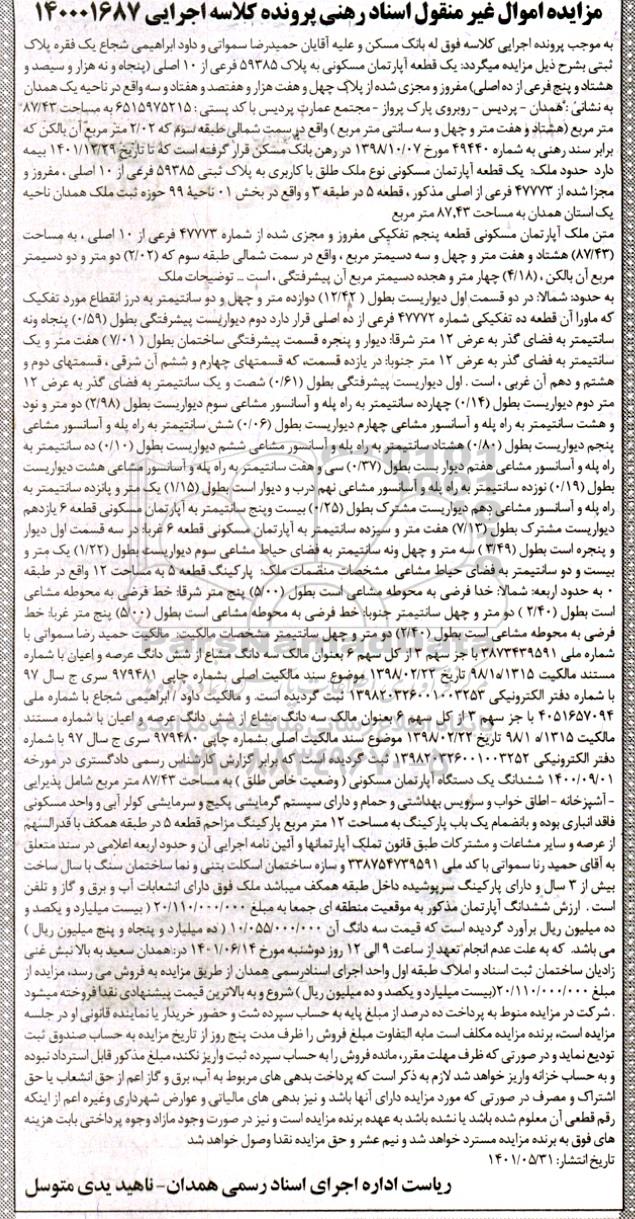 مزایده اموال غیر منقول اسناد رهنی پرونده کلاسه اجرایی ۱۴۰۰۰۱۶۸۷
به موجب پرونده اجرایی کلاسه فوق له بانک مسکن و علیه آقایان حمیدرضا سمواتی و داود ابراهیمی شجاع یک فقره پلاک
ثبتی بشرح ذیل مزایده میگردد: یک قطعه آپارتمان مسکونی به پلاک ۵۹۳۸۵ فرعی از ۱۰ اصلی (پنجاه و نه هزار و سیصد و
هشتاد و پنج فرعی از ده اصلی) مفروز و مجزی شده از پلاک چهل و هفت هزار و هفتصد و هفتاد و سه واقع در ناحیه یک همدان
به نشانی : همدان - پردیس - روبروی پارک پرواز - مجتمع عمارت پردیس با کد پستی : ۶۵۱۵۹۷۵۲۱۵ به مساحت ۸۷/۴۳
متر مربع (هشتاد و هفت متر و چهل و سه سانتی متر مربع ) واقع در سمت شمالی طبقه سوم که ۲/۰۲ متر مربع آن بالکن که
برابر سند رهنی به شماره ۴۹۴۴۰ مورخ ۱۳۹۸/۱۰/۰۷ در رهن بانک مسکن قرار گرفته است که تا تاریخ ۱۴۰۱/۱۲/۲۹ بیمه
دارد حدود ملک: یک قطعه آپارتمان مسکونی نوع ملک طلق با کاربری به پلاک ثبتی ۵۹۳۸۵ فرعی از ۱۰ اصلی ، مفروز و
مجزا شده از ۴۷۷۷۳ فرعی از اصلی مذکور ، قطعه ۵ در طبقه ۳ و واقع در بخش ۰۱ ناحیهٔ ۹۹ حوزه ثبت ملک همدان ناحیه
یک استان همدان به مساحت ۸۷.۴۳ متر مربع
متن ملک آپارتمان مسکونی قطعه پنجم تفکیکی مفروز و مجزی شده از شماره ۴۷۷۷۳ فرعی از ۱۰ اصلی ، به مساحت
(۸۷/۴۳) هشتاد و هفت متر و چهل و سه دسیمتر مربع ، واقع در سمت شمالی طبقه سوم که (۲/۰۲) دو متر و دو دسیمتر
مربع آن بالکن ، (۴/۱۸) چهار متر و هجده دسیمتر مربع آن پیشرفتگی ، است ـ توضیحات ملک
به حدود: شمالا: در دو قسمت اول دیواریست بطول ( ۱۲/۴۲) دوازده متر و چهل و دو سانتیمتر به درز انقطاع مورد تفکیک
که ماورا آن قطعه ده تفکیکی شماره ۴۷۷۷۲ فرعی از ده اصلی قرار دارد دوم دیواریست پیشرفتگی بطول (۰/۵۹) پنجاه ونه
سانتیمتر به فضای گذر به عرض ۱۲ متر شرقا: دیوار و پنجره قسمت پیشرفتگی ساختمان بطول ( ۷/۰۱) هفت متر و یک
سانتیمتر به فضای گذر به عرض ۱۲ متر جنوبا: در یازده قسمت، که قسمتهای چهارم و ششم آن شرقی ، قسمتهای دوم و
هشتم و دهم آن غربی ، است . اول دیواریست پیشرفتگی بطول (۰/۶۱) شصت و یک سانتیمتر به فضای گذر به عرض ۱۲
متر دوم دیواریست بطول (۰/۱۴) چهارده سانتیمتر به راه پله و آسانسور مشاعی سوم دیواریست بطول (۲/۹۸) دو متر و نود
و هشت سانتیمتر به راه پله و آسانسور مشاعی چهارم دیواریست بطول (۰/۰۶) شش سانتیمتر به راه پله و آسانسور مشاعی
پنجم دیواریست بطول (۰/۸۰) هشتاد سانتیمتر به راه پله و آسانسور مشاعی ششم دیواریست بطول (۰/۱۰) ده سانتیمتر به
راه پله و آسانسور مشاعی هفتم دیوار یست بطول (۰/۳۷) سی و هفت سانتیمتر به راه پله و آسانسور مشاعی هشت دیواریست
بطول (۰/۱۹) نوزده سانتیمتر به راه پله و آسانسور مشاعی نهم درب و دیوار است بطول (۱/۱۵) یک متر و پانزده سانتیمتر به
راه پله و آسانسور مشاعی دهم دیواریست مشترک بطول (۰/۲۵) بیست وپنج سانتیمتر به آپارتمان مسکونی قطعه ۶ یازدهم
دیواریست مشترک بطول (۷/۱۳) هفت متر و سیزده سانتیمتر به آپارتمان مسکونی قطعه ۶ غربا: در سه قسمت اول دیوار
و پنجره است بطول (۳/۴۹) سه متر و چهل ونه سانتیمتر به فضای حیاط مشاعی سوم دیواریست بطول (۱/۲۲) یک متر و
بیست و دو سانتیمتر به فضای حیاط مشاعی مشخصات منضمات ملک: پارکینگ قطعه ۵ به مساحت ۱۲ واقع در طبقه
۰ به حدود اربعه: شمالا: خدا فرضی به محوطه مشاعی است بطول (۵/۰۰) پنج متر شرقا: خط فرضی به محوطه مشاعی
است بطول (۲/۴۰ ) دو متر و چهل سانتیمتر جنوبا: خط فرضی به محوطه مشاعی است بطول (۵/۰۰) پنج متر غربا: خط
فرضی به محوطه مشاعی است بطول (۲/۴۰) دو متر و چهل سانتیمتر مشخصات مالکیت: مالکیت حمید رضا سمواتی با
شماره ملی ۳۸۷۳۴۳۹۵۹۱ با جز سهم ۳ از کل سهم ۶ بعنوان مالک سه دانگ مشاع از شش دانگ عرصه و اعیان با شماره
مستند مالکیت ۹۸/۱۰/۱۳۱۵ تاریخ ۱۳۹۸/۰۲/۲۳ موضوع سند مالکیت اصلی بشماره چاپی ۹۷۹۴۸۱ سری ج سال ۹۷
با شماره دفتر الکترونیکی ۱۳۹۸۲۰۳۲۶۰۰۱۰۰۳۲۵۳ ثبت گردیده است. و مالکیت داود / ابراهیمی شجاع با شماره ملی
۴۰۵۱۶۵۷۰۹۴ با جز سهم ۳ از کل سهم ۶ بعنوان مالک سه دانگ مشاع از شش دانگ عرصه و اعیان با شماره مستند
مالکیت ۹۸/۱۰/۱۳۱۵ تاریخ ۱۳۹۸/۰۲/۲۳ موضوع سند مالکیت اصلی بشماره چاپی ۹۷۹۴۸۰ سری ج سال ۹۷ با شماره
دفتر الکترونیکی ۱۳۹۸۲۰۳۲۶۰۰۱۰۰۳۲۵۲ ثبت گردیده است. که برابر گزارش کارشناس رسمی دادگستری در مورخه
۱۴۰۰/۰۹/۰۱ ششدانگ یک دستگاه آپارتمان مسکونی ( وضعیت خاص طلق ) به مساحت ۸۷/۴۳ متر مربع شامل پذیرایی
- آشپزخانه - اطاق خواب و سرویس بهداشتی و حمام و دارای سیستم گرمایشی پکیج و سرمایشی کولر آبی و واحد مسکونی
فاقد انباری بوده و بانضمام یک باب پارکینگ به مساحت ۱۲ متر مربع پارکینگ مزاحم قطعه ۵ در طبقه همکف با قدرالسهم
از عرصه و سایر مشاعات و مشترکات طبق قانون تملک آپارتمانها و آئین نامه اجرایی آن و حدود اربعه اعلامی در سند متعلق
به آقای حمید رنا سمواتی با کد ملی ۳۳۸۷۵۴۷۳۹۵۹۱ و سازه ساختمان اسکلت بتنی و نما ساختمان سنگ با سال ساخت
بیش از ۳ سال و دارای پارکینگ سرپوشیده داخل طبقه همکف میباشد ملک فوق دارای انشعابات آب و برق و گاز و تلفن
است . ارزش ششدانگ آپارتمان مذکور به موقعیت منطقه ای جمعا به مبلغ ۲۰/۱۱۰/۰۰۰/۰۰۰ ( بیست میلیارد و یکصد و
ده میلیون ریال برآورد گردیده است که قیمت سه دانگ آن ۱۰/۰۵۵/۰۰۰/۰۰۰ ( ده میلیارد و پنجاه و پنج میلیون ریال )
می باشد. که به علت عدم انجام تعهد از ساعت ۹ الی ۱۲ روز دوشنبه مورخ ۱۴۰۱/۰۶/۱۴ در: همدان سعید به بالا نبش غنی
زادیان ساختمان ثبت اسناد و املاک طبقه اول واحد اجرای اسنادرسمی همدان از طریق مزایده به فروش می رسد، مزایده از
مبلغ ۲۰/۱۱۰/۰۰۰/۰۰۰(بیست میلیارد و یکصد و ده میلیون ریال) شروع و به بالاترین قیمت پیشنهادی نقدا فروخته میشود
. شرکت در مزایده منوط به پرداخت ده درصد از مبلغ پایه به حساب سپرده شت و حضور خریدار یا نماینده قانونی او در جلسه
مزایده است، برنده مزایده مکلف است مابه التفاوت مبلغ فروش را ظرف مدت پنج روز از تاریخ مزایده به حساب صندوق ثبت
تودیع نماید و در صورتی که ظرف مهلت مقرر، مانده فروش را به حساب سپرده ثبت واریز نکند، مبلغ مذکور قابل استرداد نبوده
و به حساب خزانه واریز خواهد شد لازم به ذکر است که پرداخت بدهی های مربوط به آب، برق و گاز اعم از حق انشعاب یا حق
اشتراک و مصرف در صورتی که مورد مزایده دارای آنها باشد و نیز بدهی های مالیاتی و عوارض شهرداری وغیره اعم از اینکه
رقم قطعی آن معلوم شده باشد یا نشده باشد به عهده برنده مزایده است و نیز در صورت وجود مازاد وجوه پرداختی بابت هزینه
های فوق به برنده مزایده مسترد خواهد شد و نیم عشر و حق مزایده نقدا وصول خواهد شد
تاریخ انتشار: ۱۴۰۱/۰۵/۳۱
ریاست اداره اجرای اسناد رسمی همدان- ناهید یدی متوسل